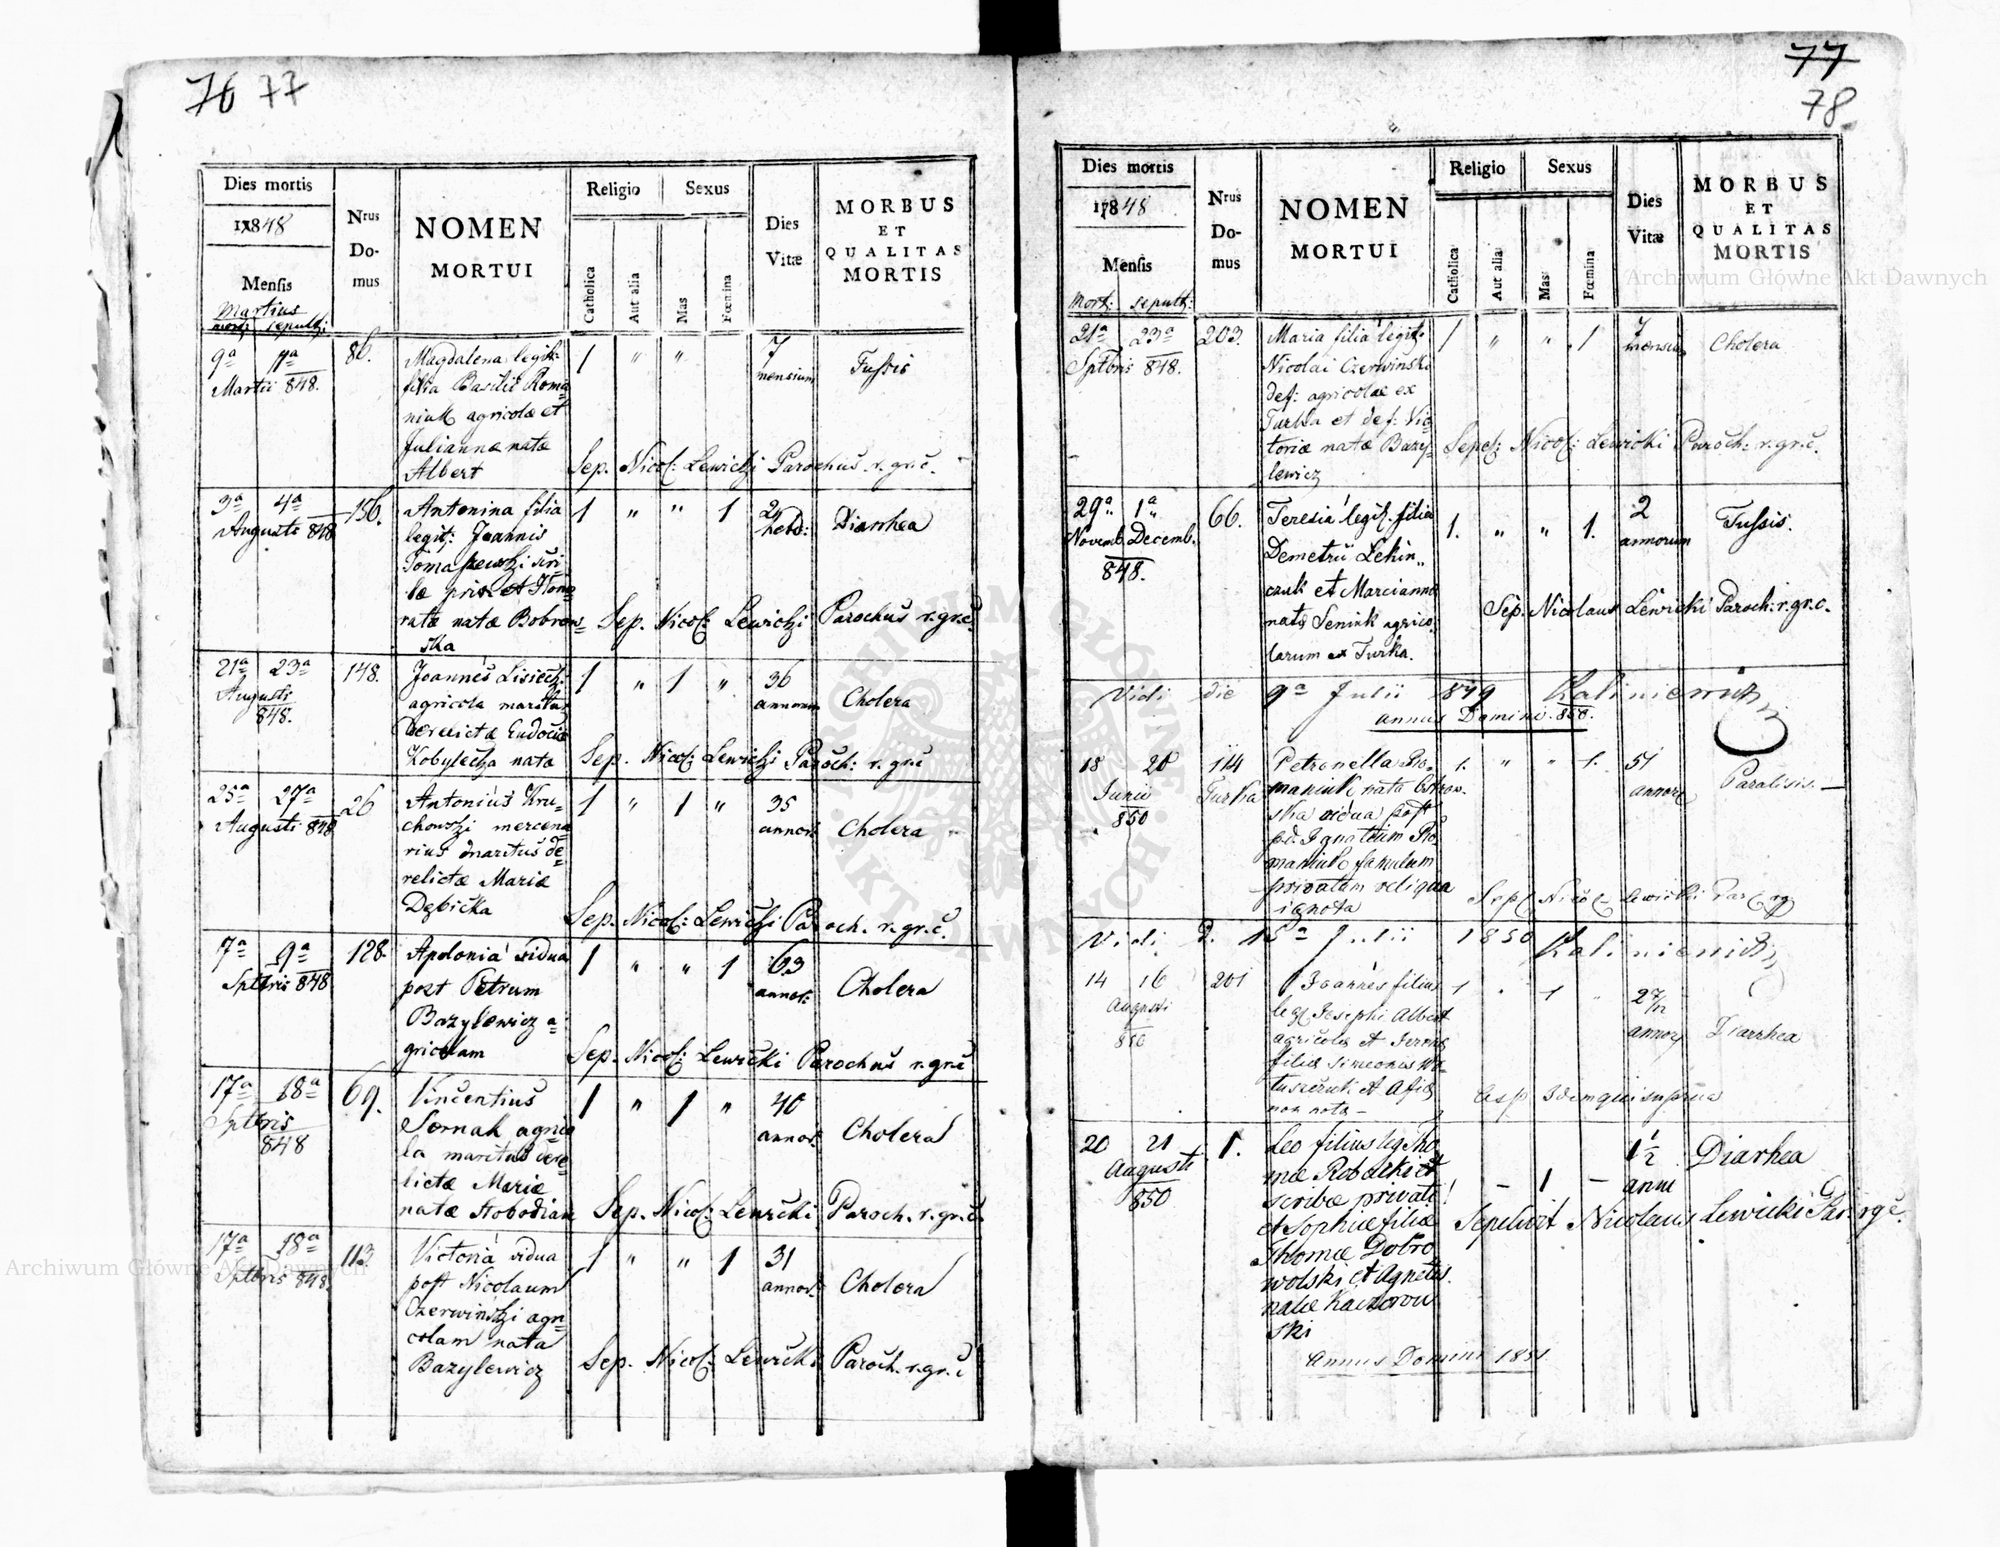 76 77
Dies mortis
1848
Mensis
Martius
mort: sepult:
Nrus
Do-
mus
NOMEN
MORTUI
Religio
Sexus
Catholica
Aut alia
Mas
Fœmina
Dies
Vitæ
MORBUS
ET
QUALITAS
MORTIS
9ª 11ª
Martii 848.
86.
Magdalena legit:
filia Basilii Roma=
niuk agricolæ et
Juliannæ natæ
Albert
1 " "
7
mensium
Tussis
Sep. Nicol: Lewicki Parochus r. gr. c.
3ª 4ª
Augusti 848
156.
Antonina filia
legit: Joannis
Tomaszewski scri=
bæ priv. et Hono=
ratæ natæ Bobrow=
ska
1 " " 1
24
hebd:
Diarrhea
Sep. Nicol: Lewicki Parochus r. gr. c.
21ª 23ª
Augusti
848.
148.
Joannes Lisiech:
agricola maritus
derelictæ Eudociæ
Kobylecka nata
1 " 1 "
36
annorum
Cholera
Sep. Nicol: Lewicki Paroch: r. gr. c
25ª 27ª
Augusti 848
26
Antonius Kru=
chowski mercena=
rius maritus de=
relictæ Mariæ
Dębicka
1 " 1 "
35
annor:
Cholera
Sep. Nicol: Lewicki Paroch. r. gr. c.
7ª 9ª
Sptbris 848
128.
Apolonia vidua
post Petrum
Bazylewicz a=
gricolam
1 " " 1
63
annor:
Cholera
Sep. Nicol: Lewicki Parochus r. gr. c
17ª 18ª
Sptbris
848
69.
Vincentius
Sornak agrico
la maritus dere=
lictæ Mariæ
natæ Slobodian
1 " 1 "
40
annor:
Cholera
Sep. Nicol: Lewicki Paroch. r. gr. c.
17ª 18ª
Sptbris 848.
113.
Victoria vidua
post Nicolaum
Czerwinski agri=
colam nata
Bazylewicz
1 " " 1
31
annor:
Cholera
Sep. Nicol: Lewicki Paroch. r. gr. c
77
78
Dies mortis
1848
Mensis
mort: sepult:
Nrus
Do-
mus
NOMEN
MORTUI
Religio
Sexus
Catholica
Aut alia
Mas
Fœmina
Dies
Vitæ
MORBUS
ET
QUALITAS
MORTIS
21ª 23ª
Sptbris 848.
203.
Maria filia legit:
Nicolai Czerwinski
def: agricolæ ex
Turka et def: Vic=
toriæ natæ Bazy=
lewicz
1 " " 1
7
mensium
Cholera
Sepel: Nicol: Lewicki Paroch: r. gr. c.
29ª 1ª
Novemb. Decemb.
848.
66.
Teresia legit. filia
Demetrii Lekin"
czuk et Marcianna
nata Senink agrico=
larum ex Turka.
1. " " 1.
2
annorum
Tussis
Sep. Nicolaus Lewicki Paroch: r. gr. c.
Vidi die 9ª Julii 1849 Kaliniewicz
annus Domini 850.
18 20
Junii
850
114
Turka
Petronella Ro=
maniuk nata Ostrow=
ska vidua post
pd. Ignatium Ro=
maniuk famulum
privatum reliqua
ignota
1. " " 1.
51
annor:
Paralisis.
Sepel Nicol Lewicki Par rg
Vidi D. 15ª Julii 1850 Kaliniewicz
14 16
Augusti
850
201
Joannes filius
leg Josephi Albert
agricolæ et
filiæ Simeonis
et
non nota
1 1
2 7/12
annor
Diarrhea
Sep Idem qui supra
20 21
Augusti
850
1.
Leo filius leg Tho
mæ Robalski et
scribæ privati
et Sophiæ filiæ
Thomæ Dobro
wolski et Agnetis
natæ Kaczorow
ski
- 1 -
1 1/2
anni
Diarhea
Sepelivit Nicolaus Lewicki Par. rg c.
Annus Domini 1851.
Archiwum Główne Akt Dawnych
Archiwum Główne Akt Dawnych
ARCHIWUM GŁÓWNE AKT DAWNYCH